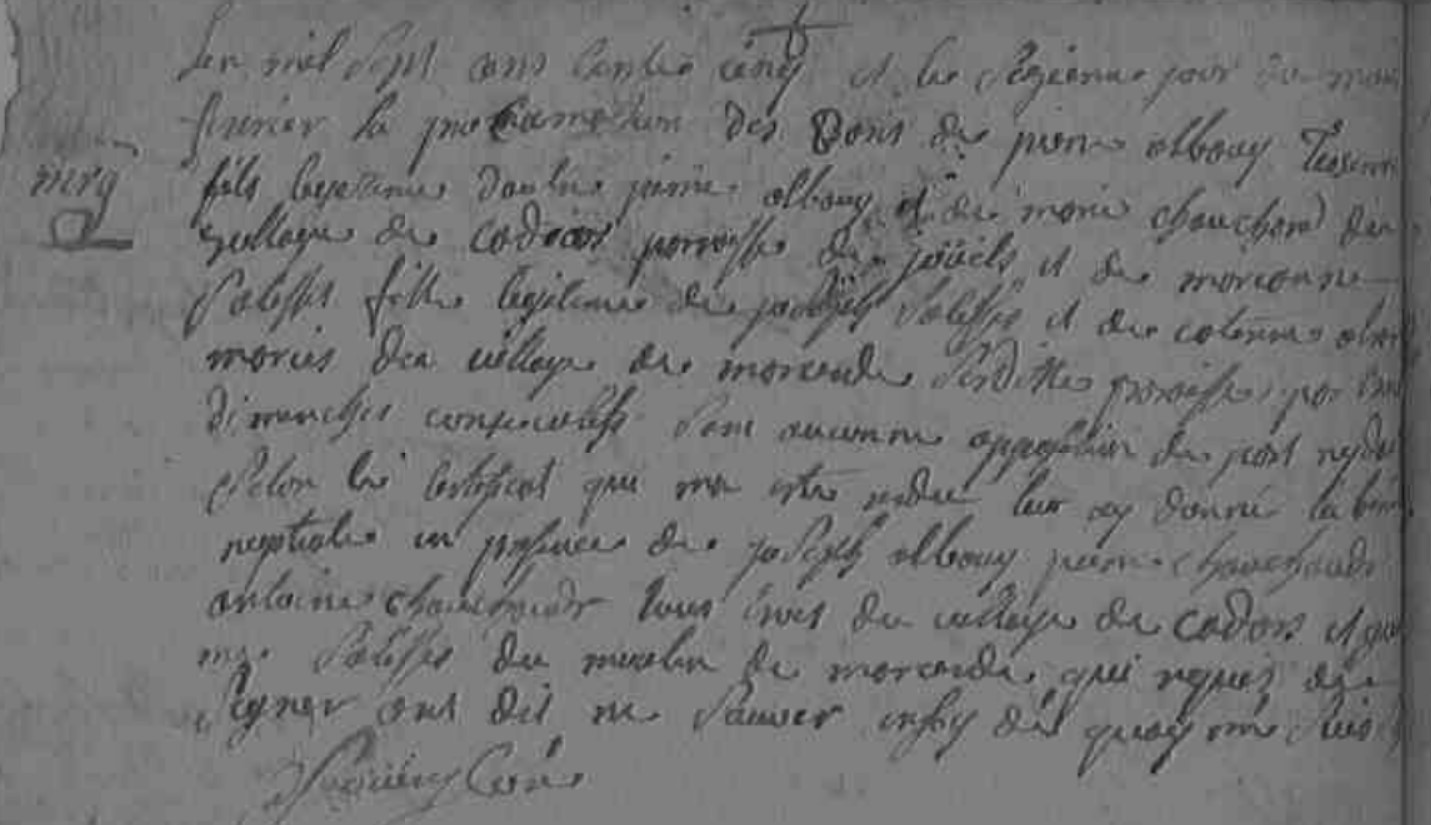 Len mil Sept cens trente cinq et le sezieme jour du mois
fevrier la proclamation des Bons de pierre albouy Tisseran
fils legetime dautre pierre albouy et de marie chauchard du
village de cadars parroisse de joüels et de marianne
Salesses fille legitime de joseph Salesses et de caterine
maries du village de marcende Susditte paroisse, par trois
dimanches consecutifs Sans aucune oppossition de part
Selon le certificat que ma este rendu leur ay donné la ben
neptiale en presence de joseph albouy pierre chauchards
antoine chauchards tous trois du village de cadars et
Salesses du moulin de marcende, qui requis de
Signer ont dit ne Sauoir en foy de quoy me Suis
Curé